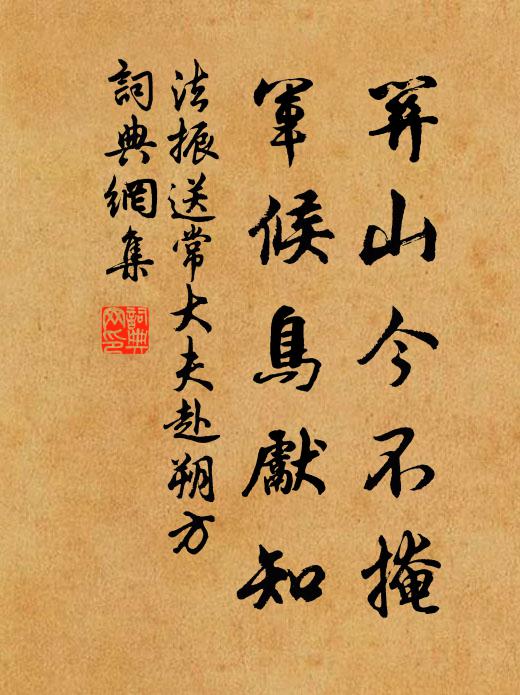 關山今不掩
軍候鳥獻知
法振送常大夫赴朔方
詞典網集
詞典網印